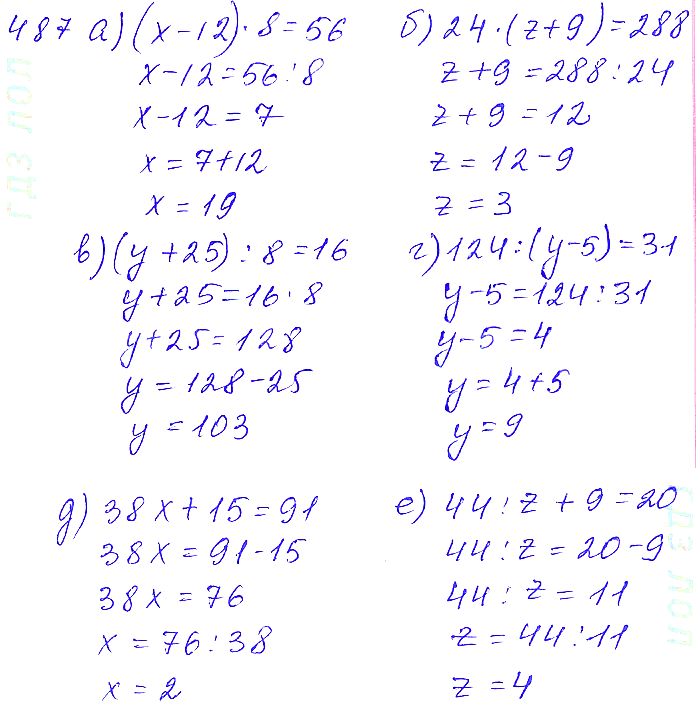 487 а) (x-12)·8=56
x-12=56:8
x-12=7
x=7+12
x=19
б) 24·(z+9)=288
z+9=288:24
z+9=12
z=12-9
z=3
в) (y+25):8=16
y+25=16·8
y+25=128
y=128-25
y=103
г) 124:(y-5)=31
y-5=124:31
y-5=4
y=4+5
y=9
д) 38x+15=91
38x=91-15
38x=76
x=76:38
x=2
е) 44:z+9=20
44:z=20-9
44:z=11
z=44:11
z=4
гдз лол
гдз лол